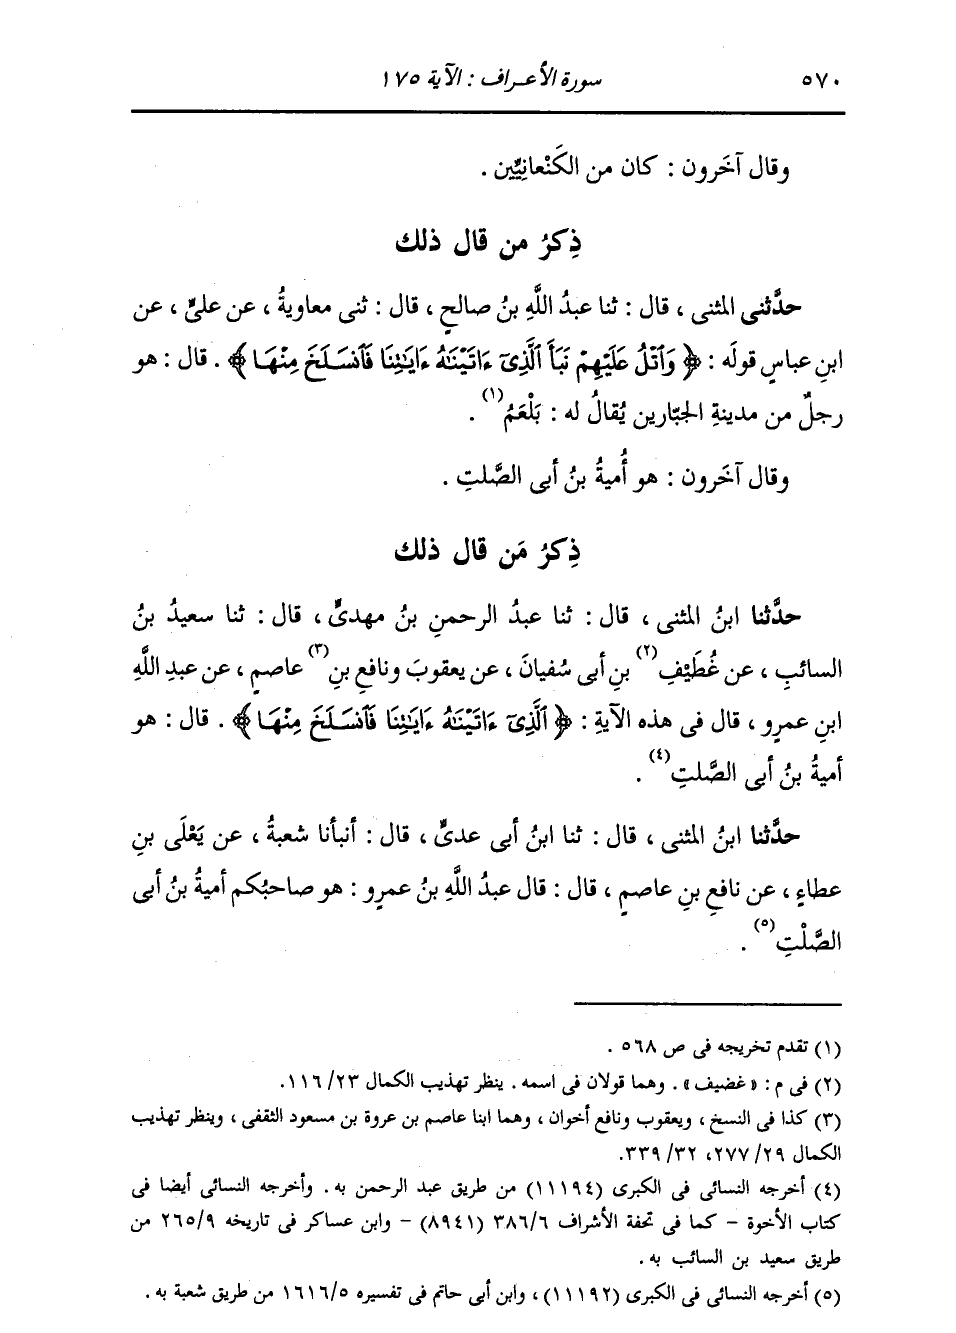 ٥٧٠ سورة الأعراف : الآية ١٧٥
وقال آخَرون : كان من الكَنْعانِيِّين .
ذِكرُ من قال ذلك
حدَّثنى المثنى ، قال : ثنا عبدُ اللَّهِ بنُ صالحٍ ، قال : ثنى معاويةُ ، عن علىٍّ ، عن
ابنِ عباسٍ قولَه : ﴿ وَٱتْلُ عَلَيْهِمْ نَبَأَ ٱلَّذِىٓ ءَاتَيْنَٰهُ ءَايَٰتِنَا فَٱنسَلَخَ مِنْهَا ﴾ . قال : هو
رجلٌ من مدينةِ الجبّارين يُقالُ له : بَلْعَمُ(١) .
وقال آخَرون : هو أُميةُ بنُ أبى الصَّلتِ .
ذِكرُ مَن قال ذلك
حدَّثنا ابنُ المثنى ، قال : ثنا عبدُ الرحمنِ بنُ مهدىٍّ ، قال : ثنا سعيدُ بنُ
السائبِ ، عن غُطَيْفِ(٢) بنِ أبى سُفيانَ ، عن يعقوبَ ونافعِ بنِ(٣) عاصمٍ ، عن عبدِ اللَّهِ
ابنِ عمرٍو ، قال فى هذه الآيةِ : ﴿ ٱلَّذِىٓ ءَاتَيْنَٰهُ ءَايَٰتِنَا فَٱنسَلَخَ مِنْهَا ﴾ . قال : هو
أميةُ بنُ أبى الصَّلتِ(٤) .
حدَّثنا ابنُ المثنى ، قال : ثنا ابنُ أبى عدىٍّ ، قال : أنبأنا شعبةُ ، عن يَعْلَى بنِ
عطاءٍ ، عن نافعِ بنِ عاصمٍ ، قال : قال عبدُ اللَّهِ بنُ عمرٍو : هو صاحبُكم أميةُ بنُ أبى
الصَّلْتِ(٥) .
(١) تقدم تخريجه فى ص ٥٦٨ .
(٢) فى م : « غضيف » . وهما قولان فى اسمه . ينظر تهذيب الكمال ٢٣/ ١١٦.
(٣) كذا فى النسخ ، ويعقوب ونافع أخوان ، وهما ابنا عاصم بن عروة بن مسعود الثقفى ، وينظر تهذيب
الكمال ٢٩/ ٢٧٧، ٣٢/ ٣٣٩.
(٤) أخرجه النسائى فى الكبرى (١١١٩٤) من طريق عبد الرحمن به . وأخرجه النسائى أيضا فى
كتاب الأخوة - كما فى تحفة الأشراف ٣٨٦/٦ (٨٩٤١) - وابن عساكر فى تاريخه ٢٦٥/٩ من
طريق سعيد بن السائب به .
(٥) أخرجه النسائى فى الكبرى (١١١٩٢) ، وابن أبى حاتم فى تفسيره ١٦١٦/٥ من طريق شعبة به .